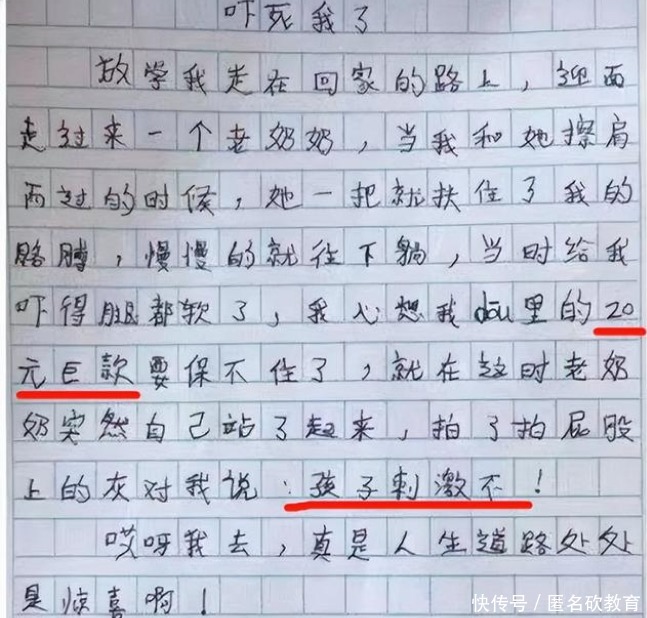 吓死我了
放学我走在回家的路上，迎面
走过来一个老奶奶，当我和她擦肩
而过的时候，她一把就扶住了我的
胳膊，慢慢的就往下躺，当时给我
吓得腿都软了，我心想我dōu里的20
元巨款要保不住了，就在这时老奶
奶突然自己站了起来，拍了拍屁股
上的灰对我说：孩子刺激不！
哎呀我去，真是人生道路处处
是惊喜啊！
快传号／匿名砍教育